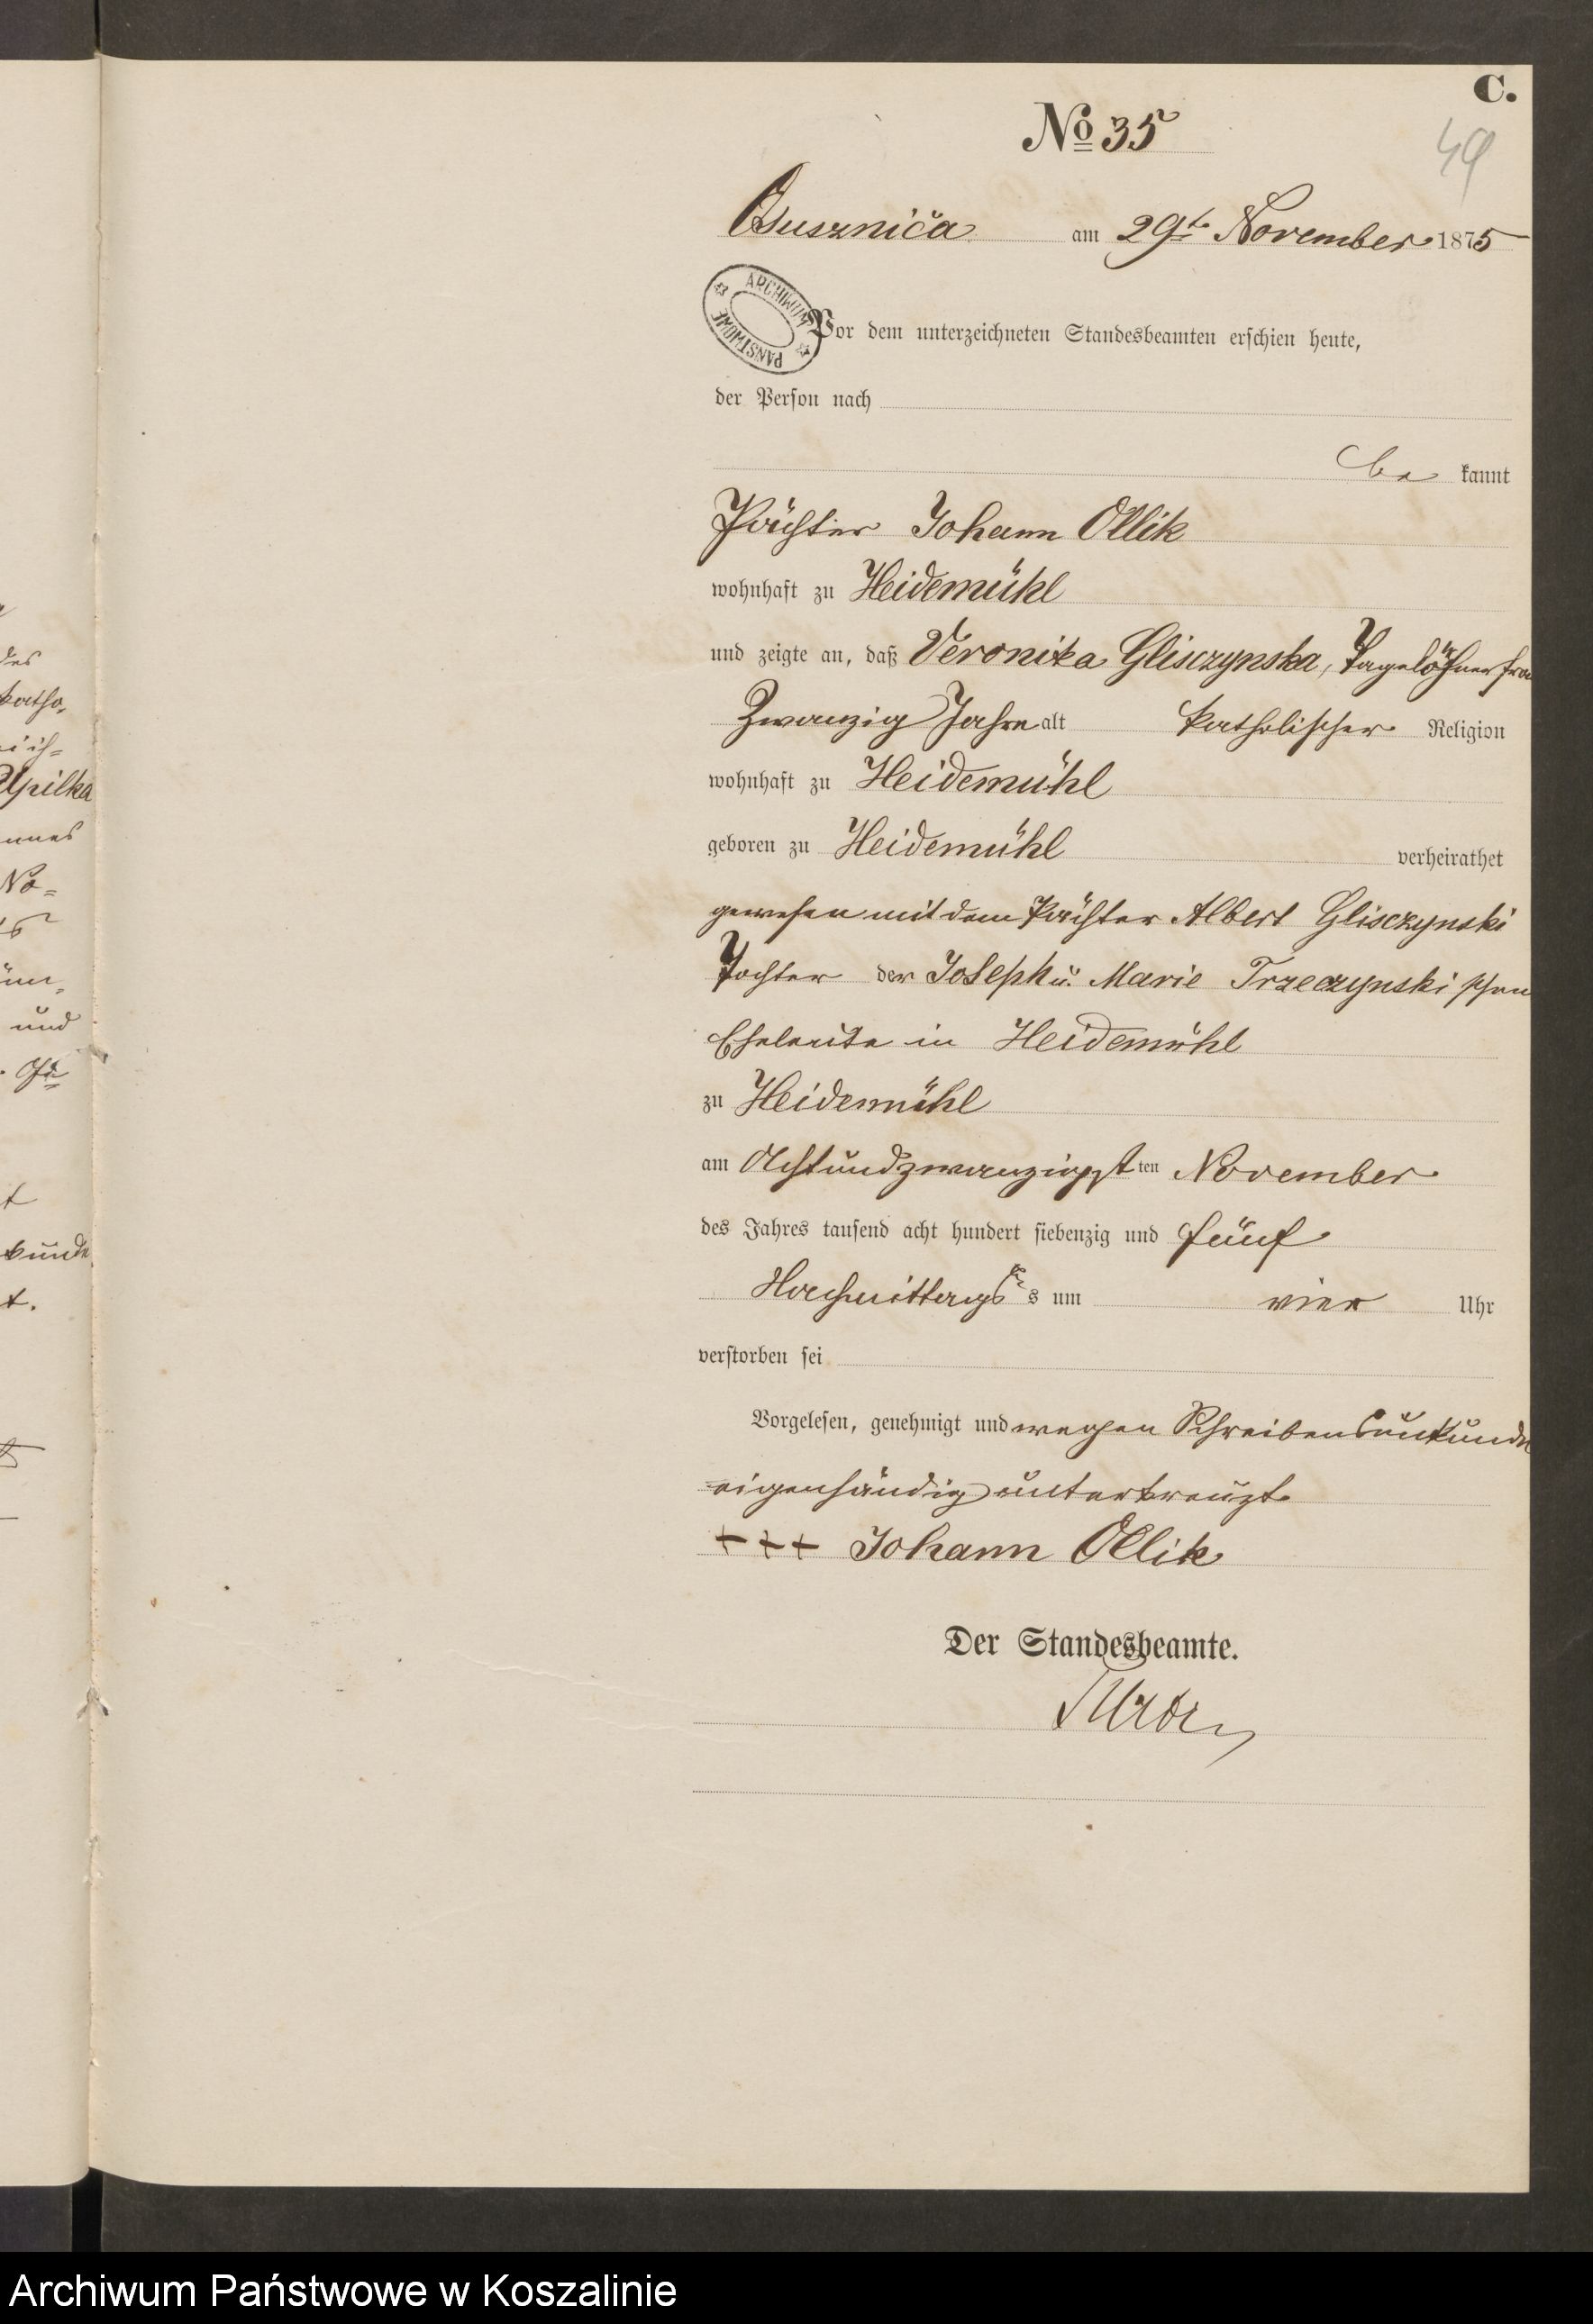 C.
№ 35
49
Ossusznića am 29t November 1875
ARCHIWUM PAŃSTWOWE
Vor dem unterzeichneten Standesbeamten erschien heute,
der Person nach
be kannt
Pächter Johann Ollik
wohnhaft zu Heidemühl
und zeigte an, daß Veronika Glisczynska, Tagelöhnerfrau
Zwanzig Jahre alt katholischer Religion
wohnhaft zu Heidemühl
geboren zu Heidemühl verheirathet
gewesen mit dem Pächter Albert Glisczynski
Tochter der Joseph u. Marie Trzeczynski schen
Eheleute in Heidemühl
zu Heidemühl
am Achtundzwanzigsten November
des Jahres tausend acht hundert siebenzig und fünf
Nachmittags um vier Uhr
verstorben sei
Vorgelesen, genehmigt und wegen Schreibensunkunde
eigenhändig unterkreuzt
+++ Johann Ollik
Der Standesbeamte.
des
katho-
Upilka
No=
und
kunde
t.
Archiwum Państwowe w Koszalinie